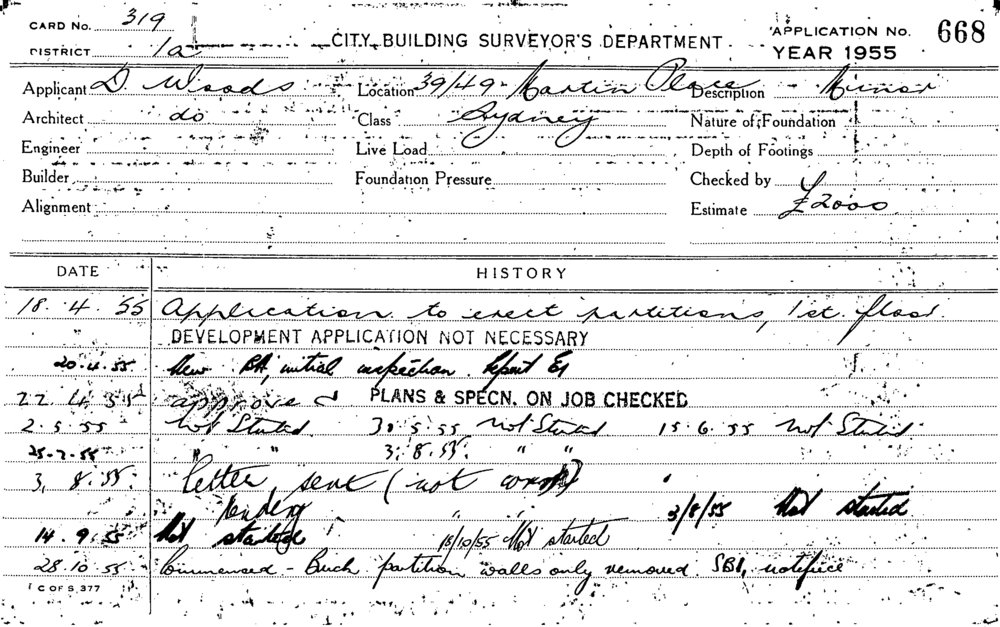 CARD No. 319
DISTRICT 1a
CITY BUILDING SURVEYOR'S DEPARTMENT
APPLICATION No. 668
YEAR 1955
Applicant D. Woods Location 39/49 Martin Place Description Minor
Architect do Class Sydney Nature of Foundation
Engineer Live Load Depth of Footings
Builder Foundation Pressure Checked by
Alignment Estimate £2000
DATE HISTORY
18.4.55 Application to erect partitions, 1st. floor.
DEVELOPMENT APPLICATION NOT NECESSARY
20.4.55 New BA, initial inspection. Report
22.4.55 approved PLANS & SPECN. ON JOB CHECKED
2.5.55 Not Started 30.5.55 Not Started 15.6.55 Not Started
25.7.55 " " 3.8.55. " "
3.8.55. Letter sent (not
3/8/55 Not started
14.9.55 Not started 18/10/55 Not started
28.10.55 Commenced - Brick partition walls only removed. SBI, notified
C OF S. 377